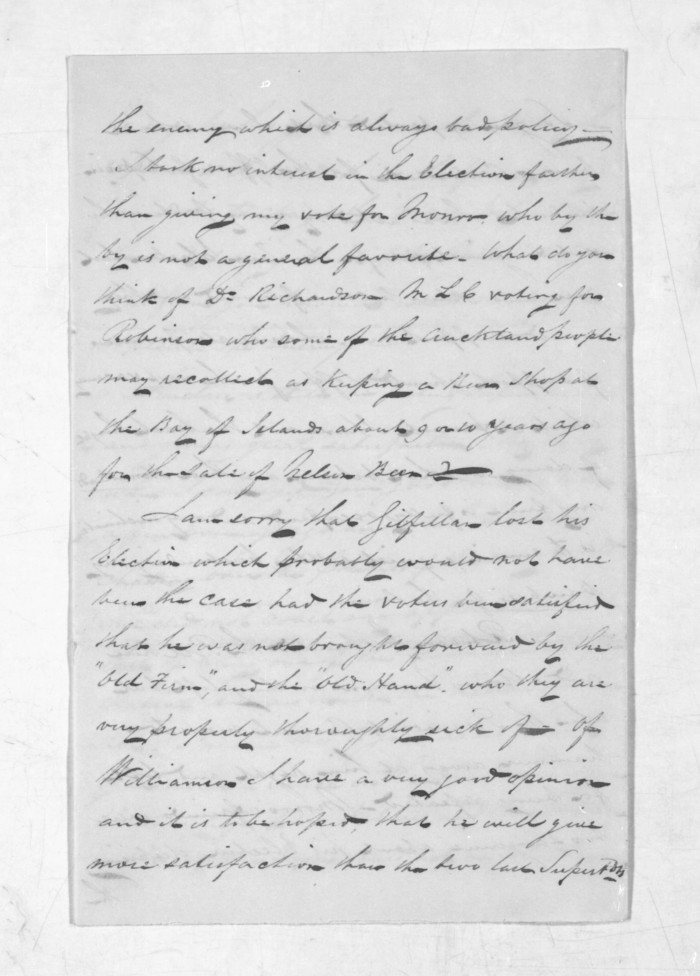 the enemy which is always bad policy —
I took no interest in the Election farther
than giving my vote for Monro. who by the
by is not a general favorite - What do you
think of Dr Richardson M L C voting for
Robinson who some of the Auckland people
may recollect as Keeping a Beer Shop at
the Bay of Islands about 9 or 10 years ago
for the Sale of Beer ?
I am sorry that Gilfillan lost his
Election which probably would not have
been the case had the voters been satisfied
that he was not brought forward by the
"Old Firm", and the "Old Hand". who they are
very properly thoroughly sick of - Of
Williamson I have a very good opinion
and it is to be hoped, that he will give
more satisfaction than the two last Superts